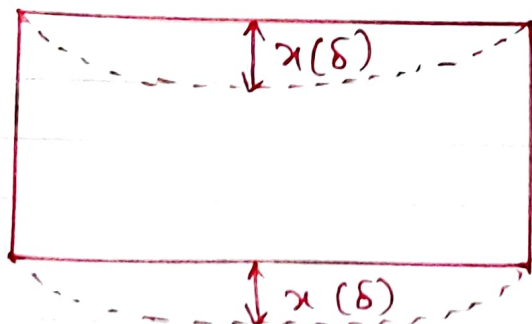 x(δ)
x (δ)